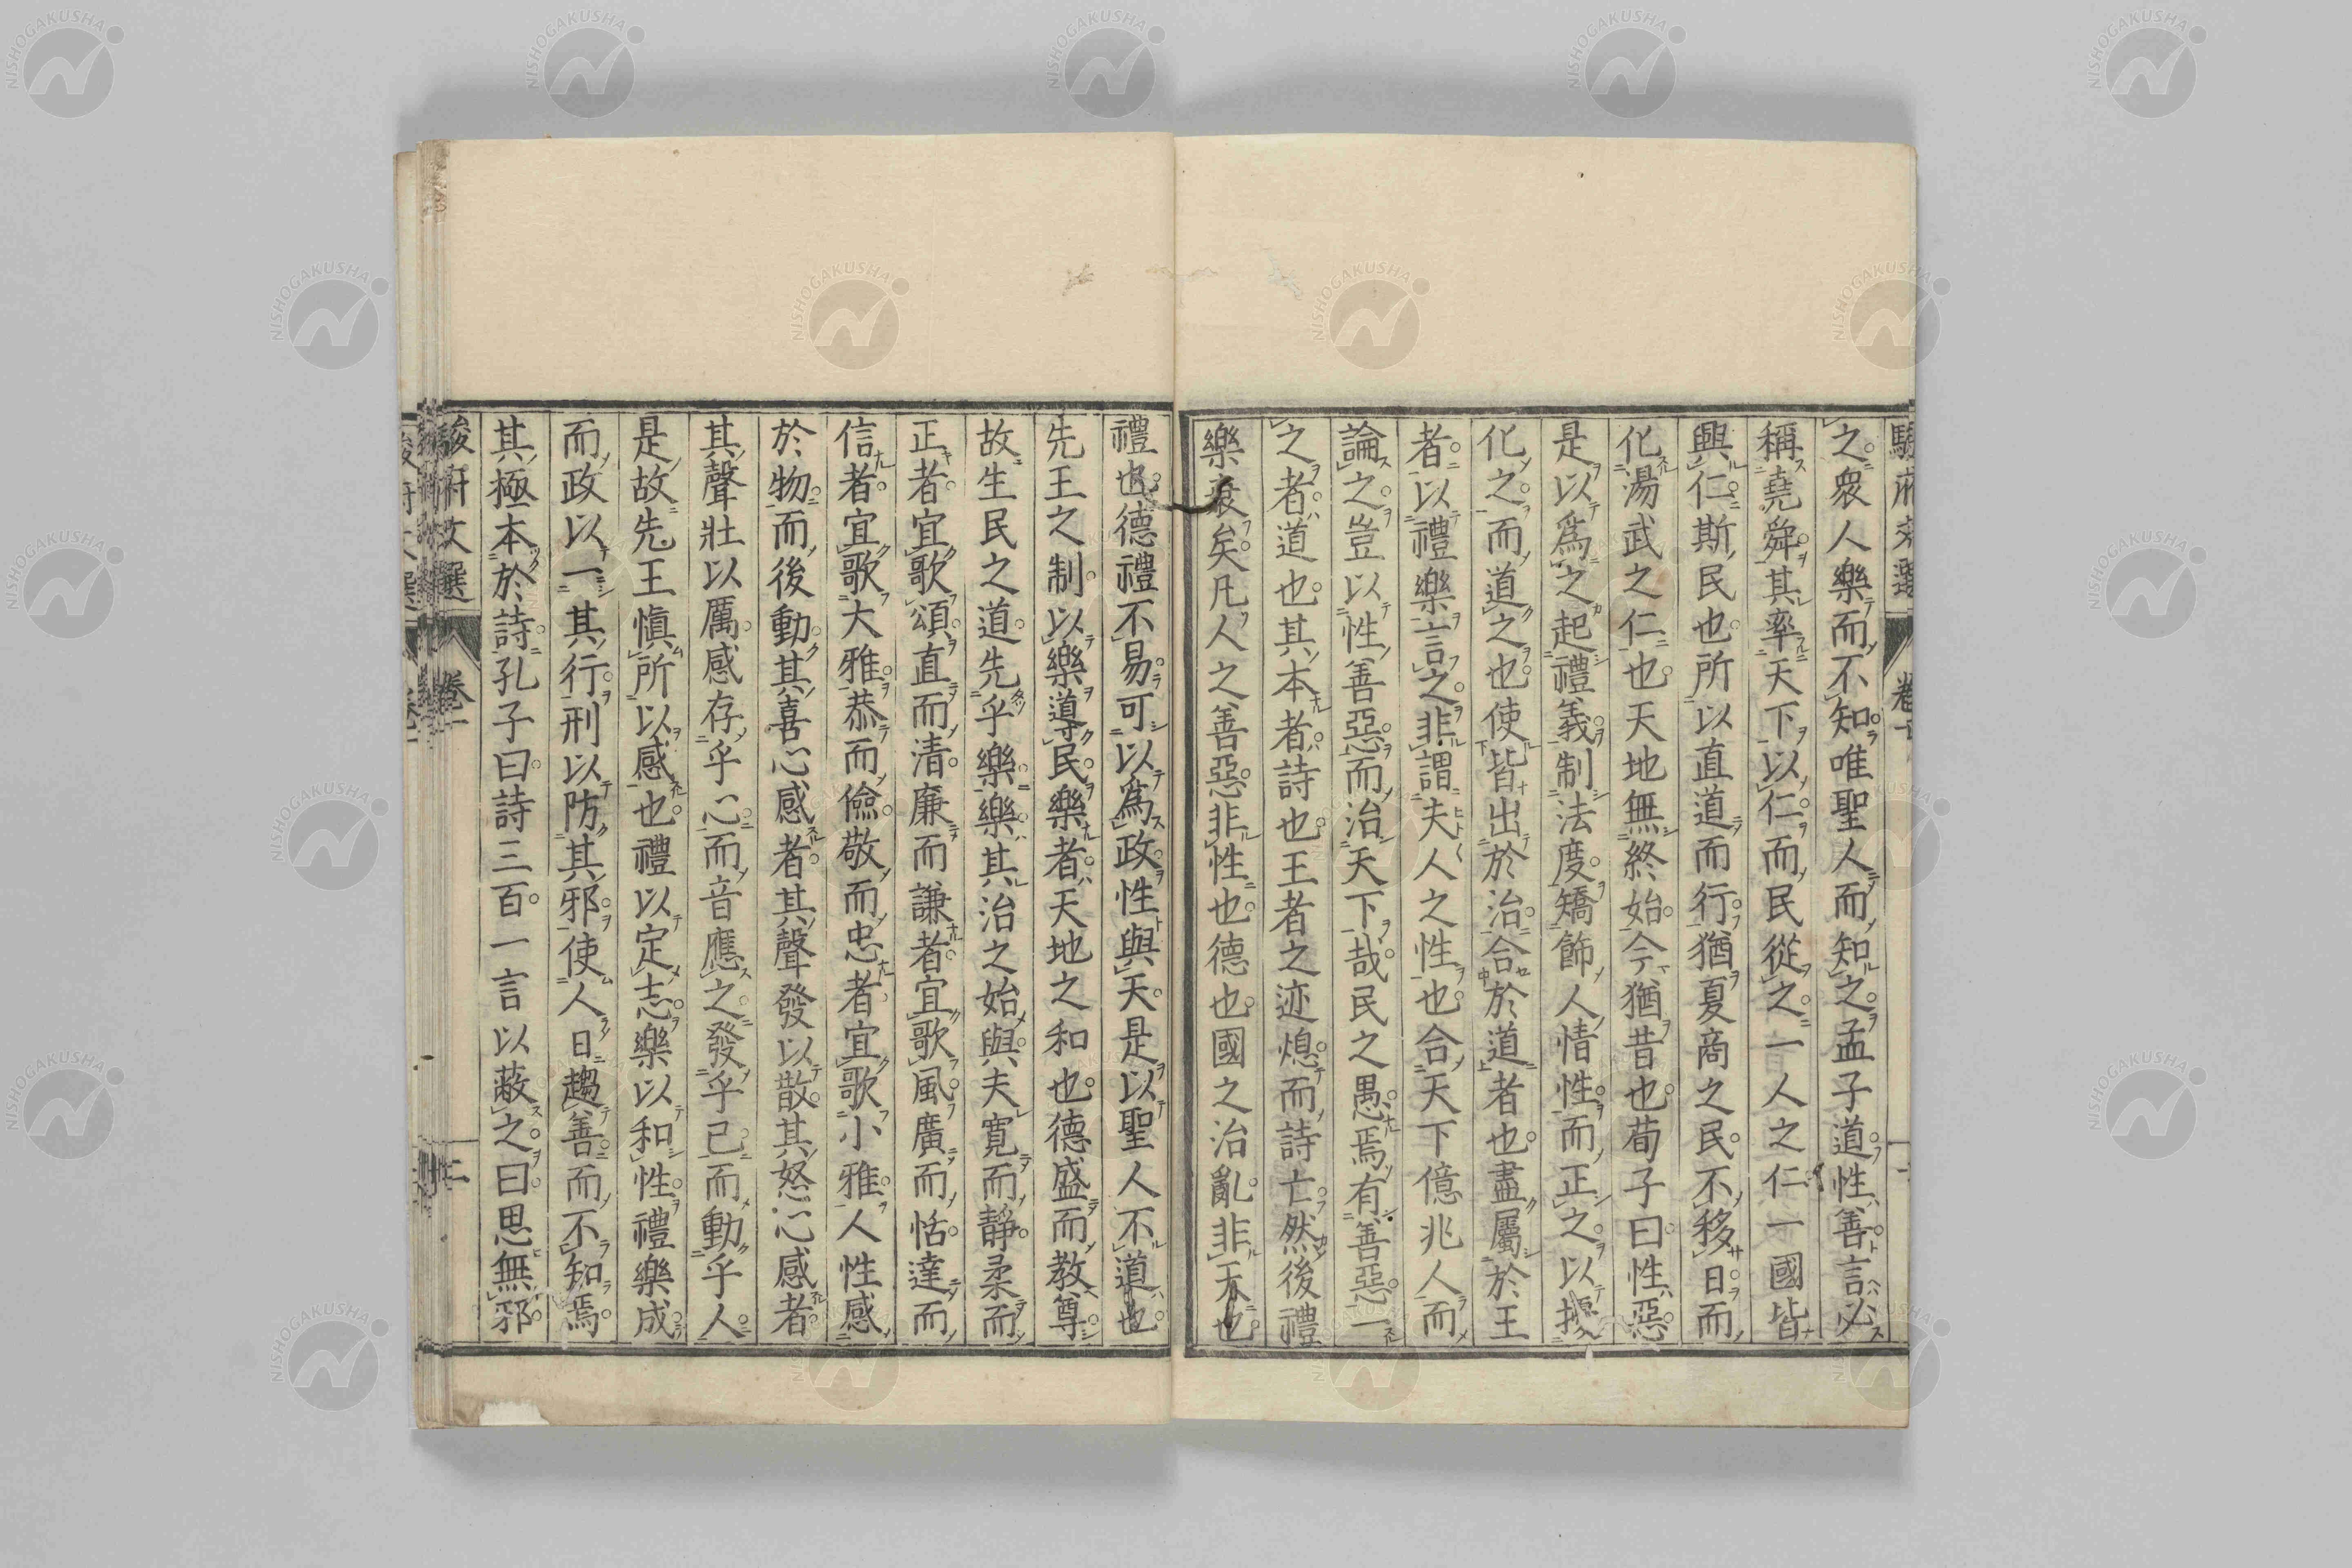 之衆人樂而不知唯聖人而知之孟子道性善言必
稱堯舜其率天下以仁而民從之一人之仁一國皆
興仁斯民也所以直道而行猶夏商之民不移日而
化湯武之仁也天地無終始今猶昔也荀子曰性惡
是以爲之起禮義制法度矯飾人情性而正之以擾
化之而道之也使皆出於治合於道者也盡屬於王
者以禮樂言之非謂夫人之性也合天下億兆人而
論之豈以性善惡而治天下哉民之愚焉有善惡一
之者道也其本者詩也王者之迹熄而詩亡然後禮
樂衰矣凡人之善惡非性也德也國之治亂非天也
禮也德禮不易可以爲政性與天是以聖人不道也
先王之制以樂導民樂者天地之和也德盛而教尊
故生民之道先乎樂樂其治之始與夫寛而靜柔而
正者宜歌頌直而清廉而謙者宜歌風廣而恬達而
信者宜歌大雅恭而儉敬而忠者宜歌小雅人性感
於物而後動其喜心感者其聲發以散其怒心感者
其聲壯以厲感存乎心而音應之發乎己而動乎人
是故先王愼所以感也禮以定志樂以和性禮樂成
而政以一其行刑以防其邪使人日趨善而不知焉
其極本於詩孔子曰詩三百一言以蔽之曰思無邪
駿府文選 卷一 二
NISHOGAKUSHA